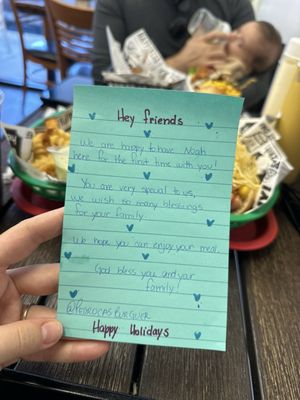 Hey friends
We are happy to have Noah
here for the first time with you!
You are very special to us,
we wish so many blessings
for your family
We hope you can enjoy your meal.
God bless you and your
family!
@PEDROCAS BURGUER
Happy Holidays